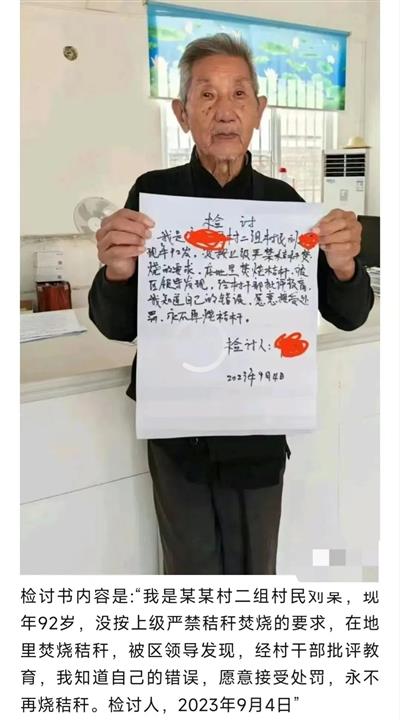 检 讨
我是村二组村民刘
现年92岁，没按上级严禁秸秆焚
烧的要求，在地里焚烧秸秆，被
区领导发现，经村干部批评教育，
我知道自己的错误，愿意接受处
罚，永不再烧秸秆。
检讨人：
2023年9月4日
检讨书内容是:“我是某某村二组村民刘某，现
年92岁，没按上级严禁秸秆焚烧的要求，在地
里焚烧秸秆，被区领导发现，经村干部批评教
育，我知道自己的错误，愿意接受处罚，永不
再烧秸秆。检讨人，2023年9月4日”